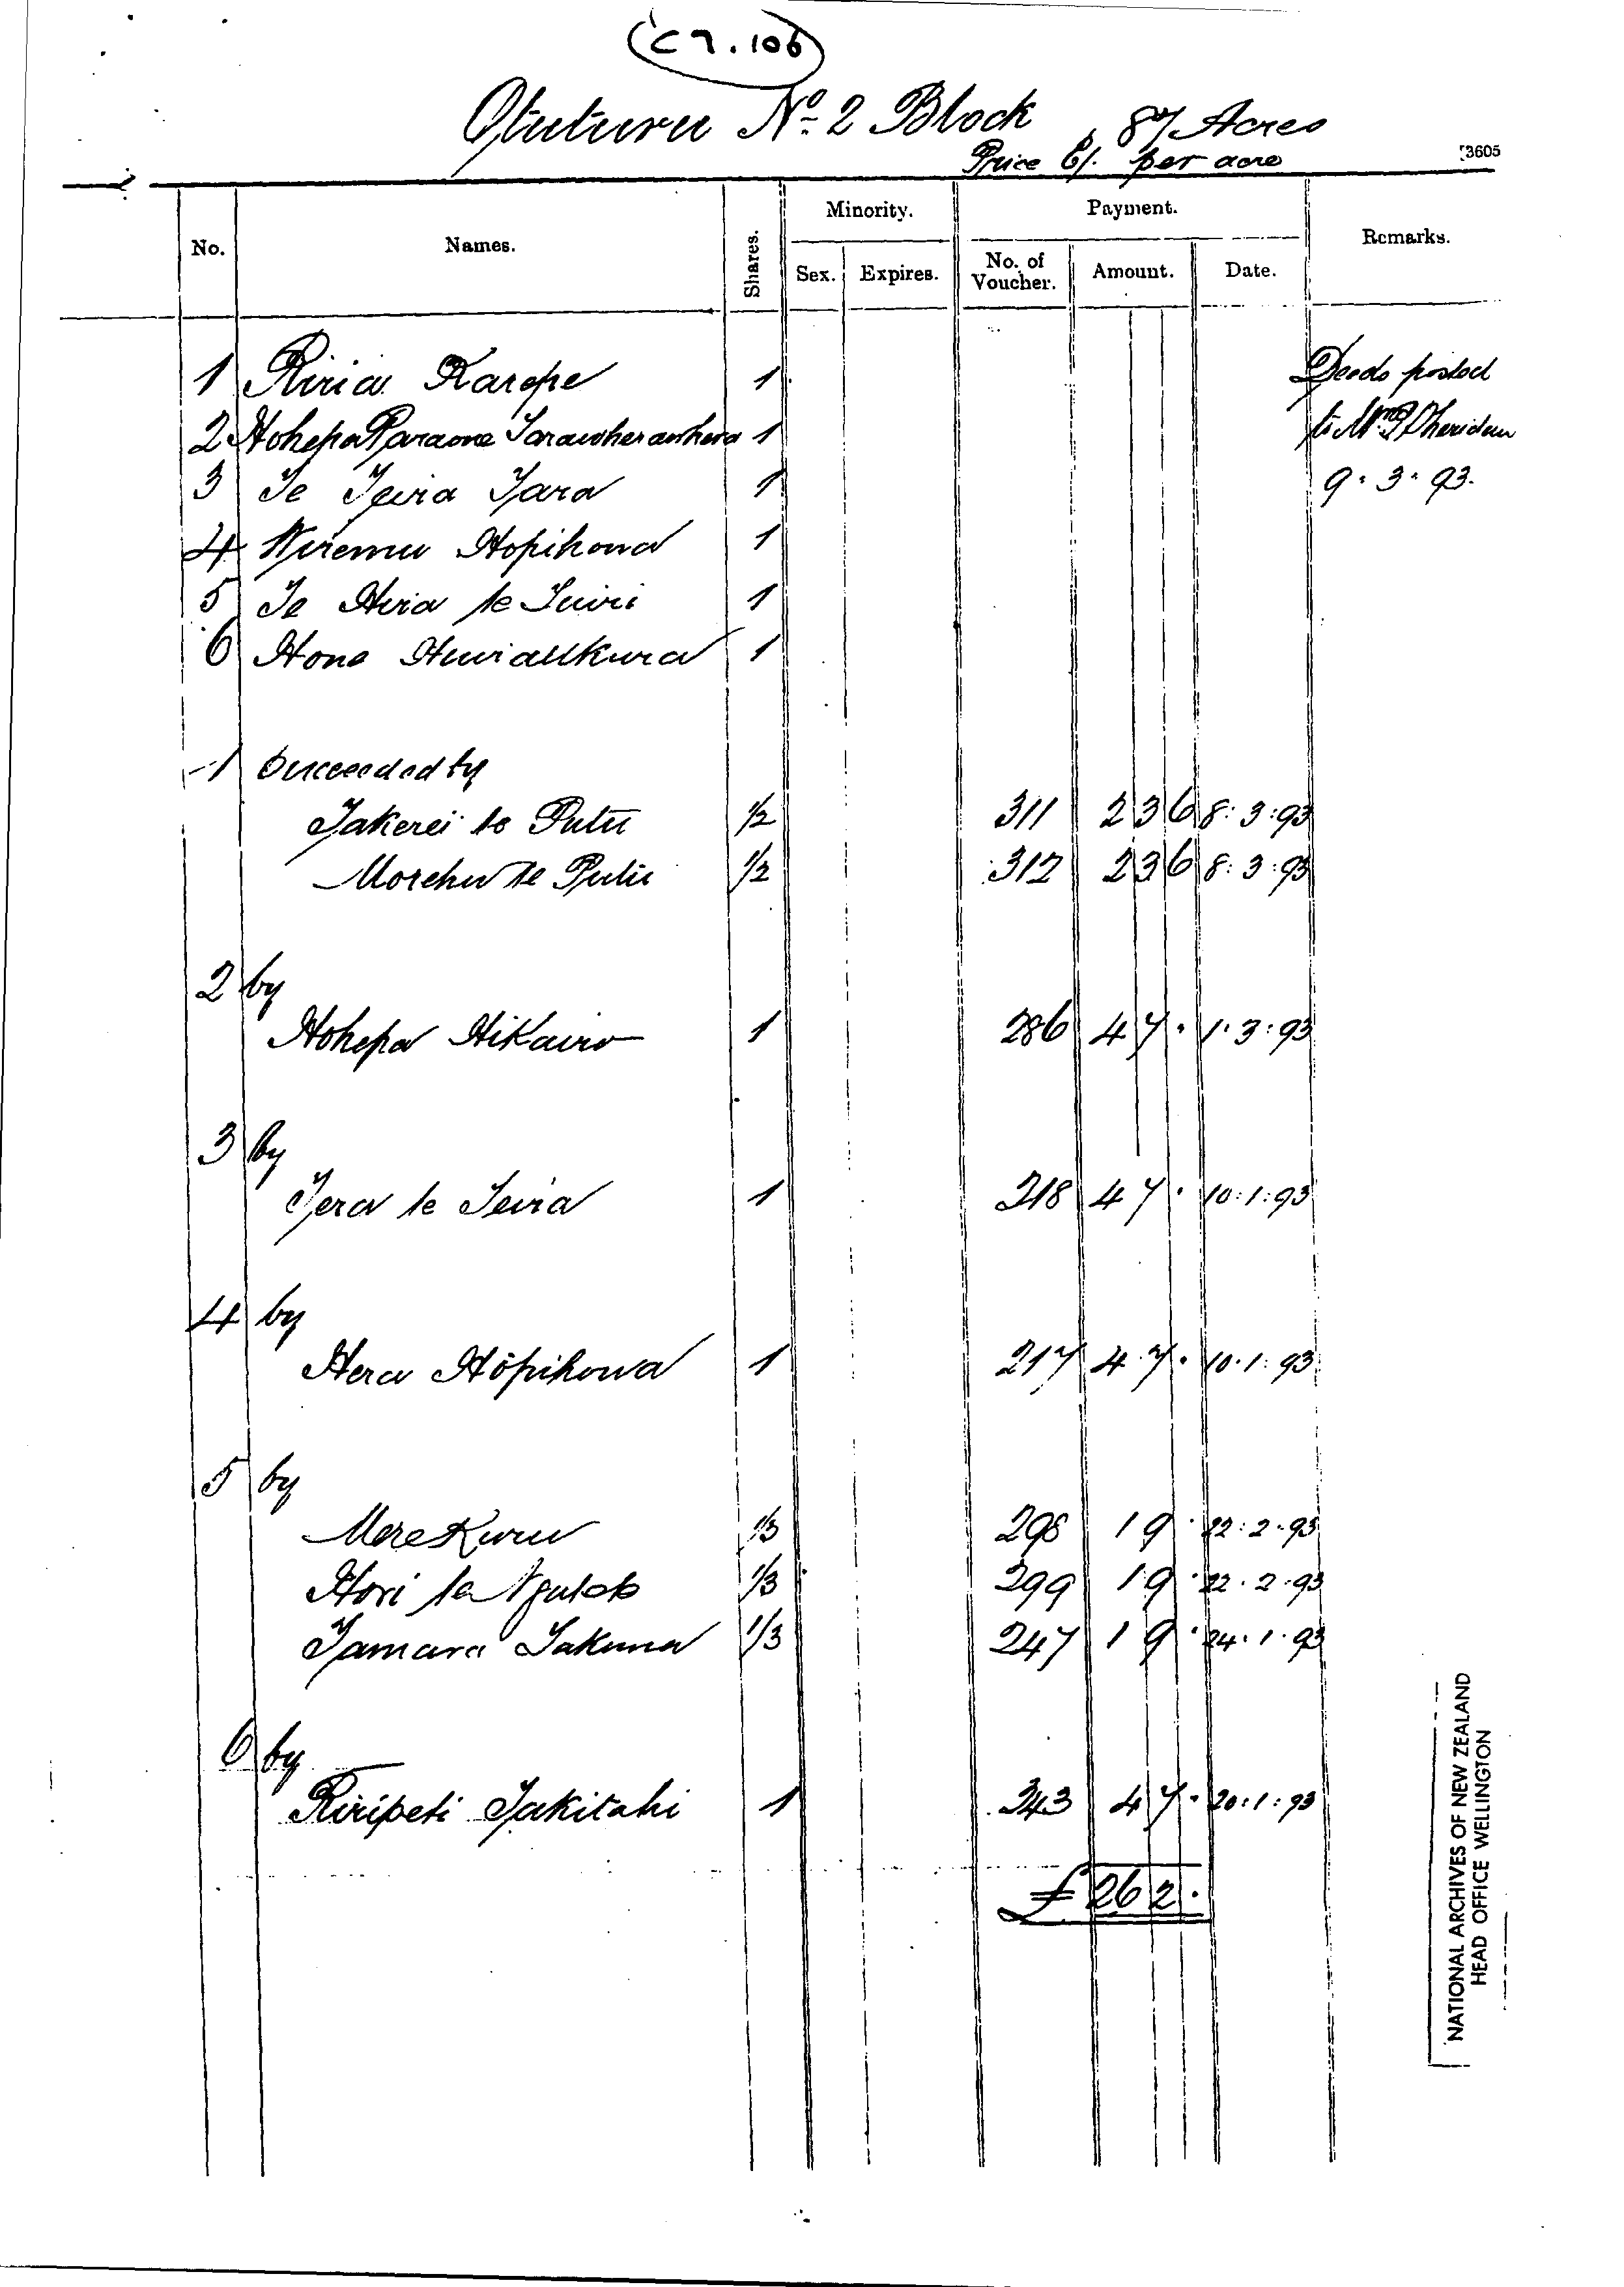 C7.106
Otuturu No. 2 Block 87 Acres
Price 6/. per acre
3605
No. Names. Shares. Minority. Payment. Remarks.
Sex. Expires. No. of Voucher. Amount. Date.
1 Riria Karepe 1 Deeds posted
2 Hohepa Paraone 1 to Mr P Sheridan
3 Te Teira Tara 1 9 . 3 . 93.
4 Wiremu Hopihona 1
5 Te Hira te Tuiri 1
6 Hone 1
1 Succeeded by
Takerei te Putu 1/2 311 2 3 6 8 : 3 : 93
Morehu te Putu 1/2 312 2 3 6 8 : 3 : 93
2 by
Hohepa Hikairo 1 286 4 7 . 1 . 3 : 93
3 by
Tera te Teira 1 218 4 7 . 10 : 1 : 93
4 by
Hera Hopihona 1 217 4 7 . 10 . 1 : 93
5 by
Mere Kuru 1/3 298 1 9 . 22 : 2 . 93
Hori te 1/3 299 1 9 . 22 . 2 . 93
Tamara Takuna 1/3 247 1 9 . 24 . 1 . 93
6 by
Riripeti Takitahi 1 243 4 7 . 20 : 1 : 93
£ 26 2 .
NATIONAL ARCHIVES OF NEW ZEALAND
HEAD OFFICE WELLINGTON